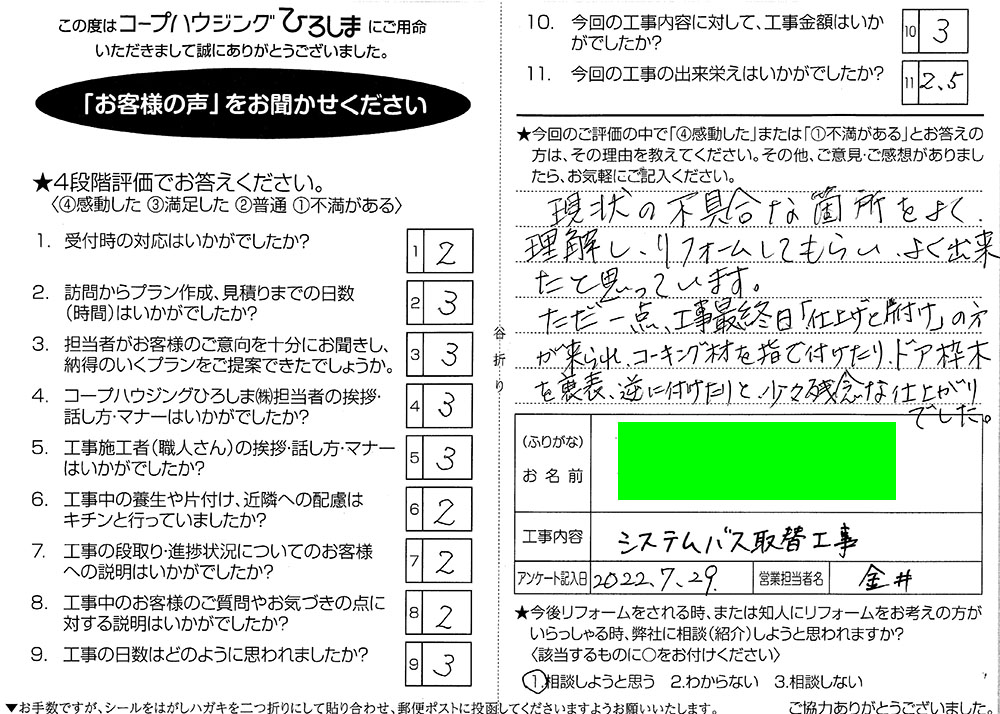 この度はコープハウジングひろしまにご用命
いただきまして誠にありがとうございました。
「お客様の声」をお聞かせください
★4段階評価でお答えください。
〈④感動した ③満足した ②普通 ①不満がある〉
1. 受付時の対応はいかがでしたか?
1 2
2. 訪問からプラン作成、見積りまでの日数
(時間)はいかがでしたか?
2 3
3. 担当者がお客様のご意向を十分にお聞きし、
納得のいくプランをご提案できたでしょうか。
3 3
4. コープハウジングひろしま㈱担当者の挨拶・
話し方・マナーはいかがでしたか?
4 3
5. 工事施工者(職人さん)の挨拶・話し方・マナー
はいかがでしたか?
5 3
6. 工事中の養生や片付け、近隣への配慮は
キチンと行っていましたか?
6 2
7. 工事の段取り・進捗状況についてのお客様
への説明はいかがでしたか?
7 2
8. 工事中のお客様のご質問やお気づきの点に
対する説明はいかがでしたか?
8 2
9. 工事の日数はどのように思われましたか?
9 3
▼お手数ですが、シールをはがしハガキを二つ折りにして貼り合わせ、郵便ポストに投函してくださいますようお願いいたします。
谷折り
10. 今回の工事内容に対して、工事金額はいか
がでしたか?
10 3
11. 今回の工事の出来栄えはいかがでしたか?
11 2.5
★今回のご評価の中で「④感動した」または「①不満がある」とお答えの
方は、その理由を教えてください。その他、ご意見・ご感想がありまし
たら、お気軽にご記入ください。
現状の不具合な箇所をよく、
理解し、リフォームしてもらい、よく出来
たと思っています。
ただ一点、工事最終日「仕上げと片付け」の方
が来られ、コーキング材を指で付けたり、ドア枠木
を裏表、逆に付けたりと、少々残念な仕上がり
でした。
(ふりがな)
お名前
工事内容 システムバス取替工事
アンケート記入日 2022.7.29. 営業担当者名 金井
★今後リフォームをされる時、または知人にリフォームをお考えの方が
いらっしゃる時、弊社に相談(紹介)しようと思われますか?
〈該当するものに○をお付けください〉
1.相談しようと思う 2.わからない 3.相談しない
ご協力ありがとうございました。